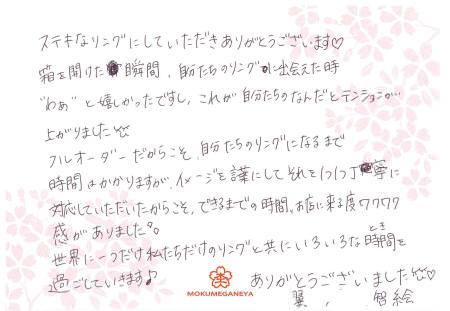 ステキなリングにしていただきありがとうございます♡
箱を開けた瞬間、自分たちのリングに出会えた時
"わぁ"と嬉しかったですし、これが自分たちのなんだとテンションが…
上がりました
フルオーダーだからこそ、自分たちのリングになるまで
時間はかかりますが、イメージを言葉にしてそれを1つ1つ丁寧に
対応していただいたからこそ、できるまでの時間、お店に来る度ワクワク
感がありました。
世界に一つだけ私たちだけのリングと共にいろいろな時間(とき)を
過ごしていきます♪
ありがとうございました♡
翼、智絵
MOKUMEGANEYA